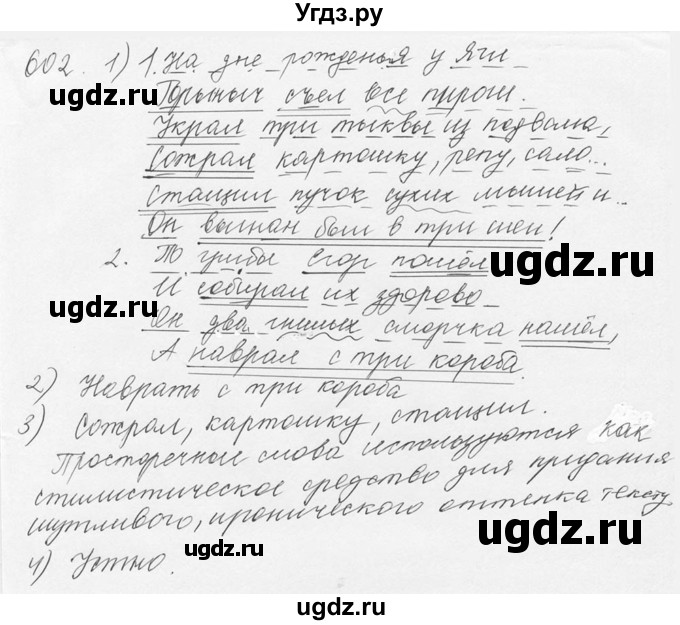 Угдз.ру
602. 1) 1. На дне рожденья у Яги
Горыныч съел все пироги.
Украл три тыквы из подвала,
Сожрал картошку, репу, сало...
стащил пучок сухих мышей и...
Он выгнан был в три шеи!
2. По грибы Егор пошёл
И собирал их здорово
Он два гнилых сморчка нашёл,
А наврал с три короба
2) Наврать с три короба
3) Сожрал, картошку, стащил.
Просторечные слова используются как
стилистическое средство для придания
шутливого, иронического оттенка тексту
4) Устно.
ugdz.ru
ugdz.ru
ugdz.ru
ugdz.ru
ugdz.ru
ugdz.ru
ugdz.ru
ugdz.ru